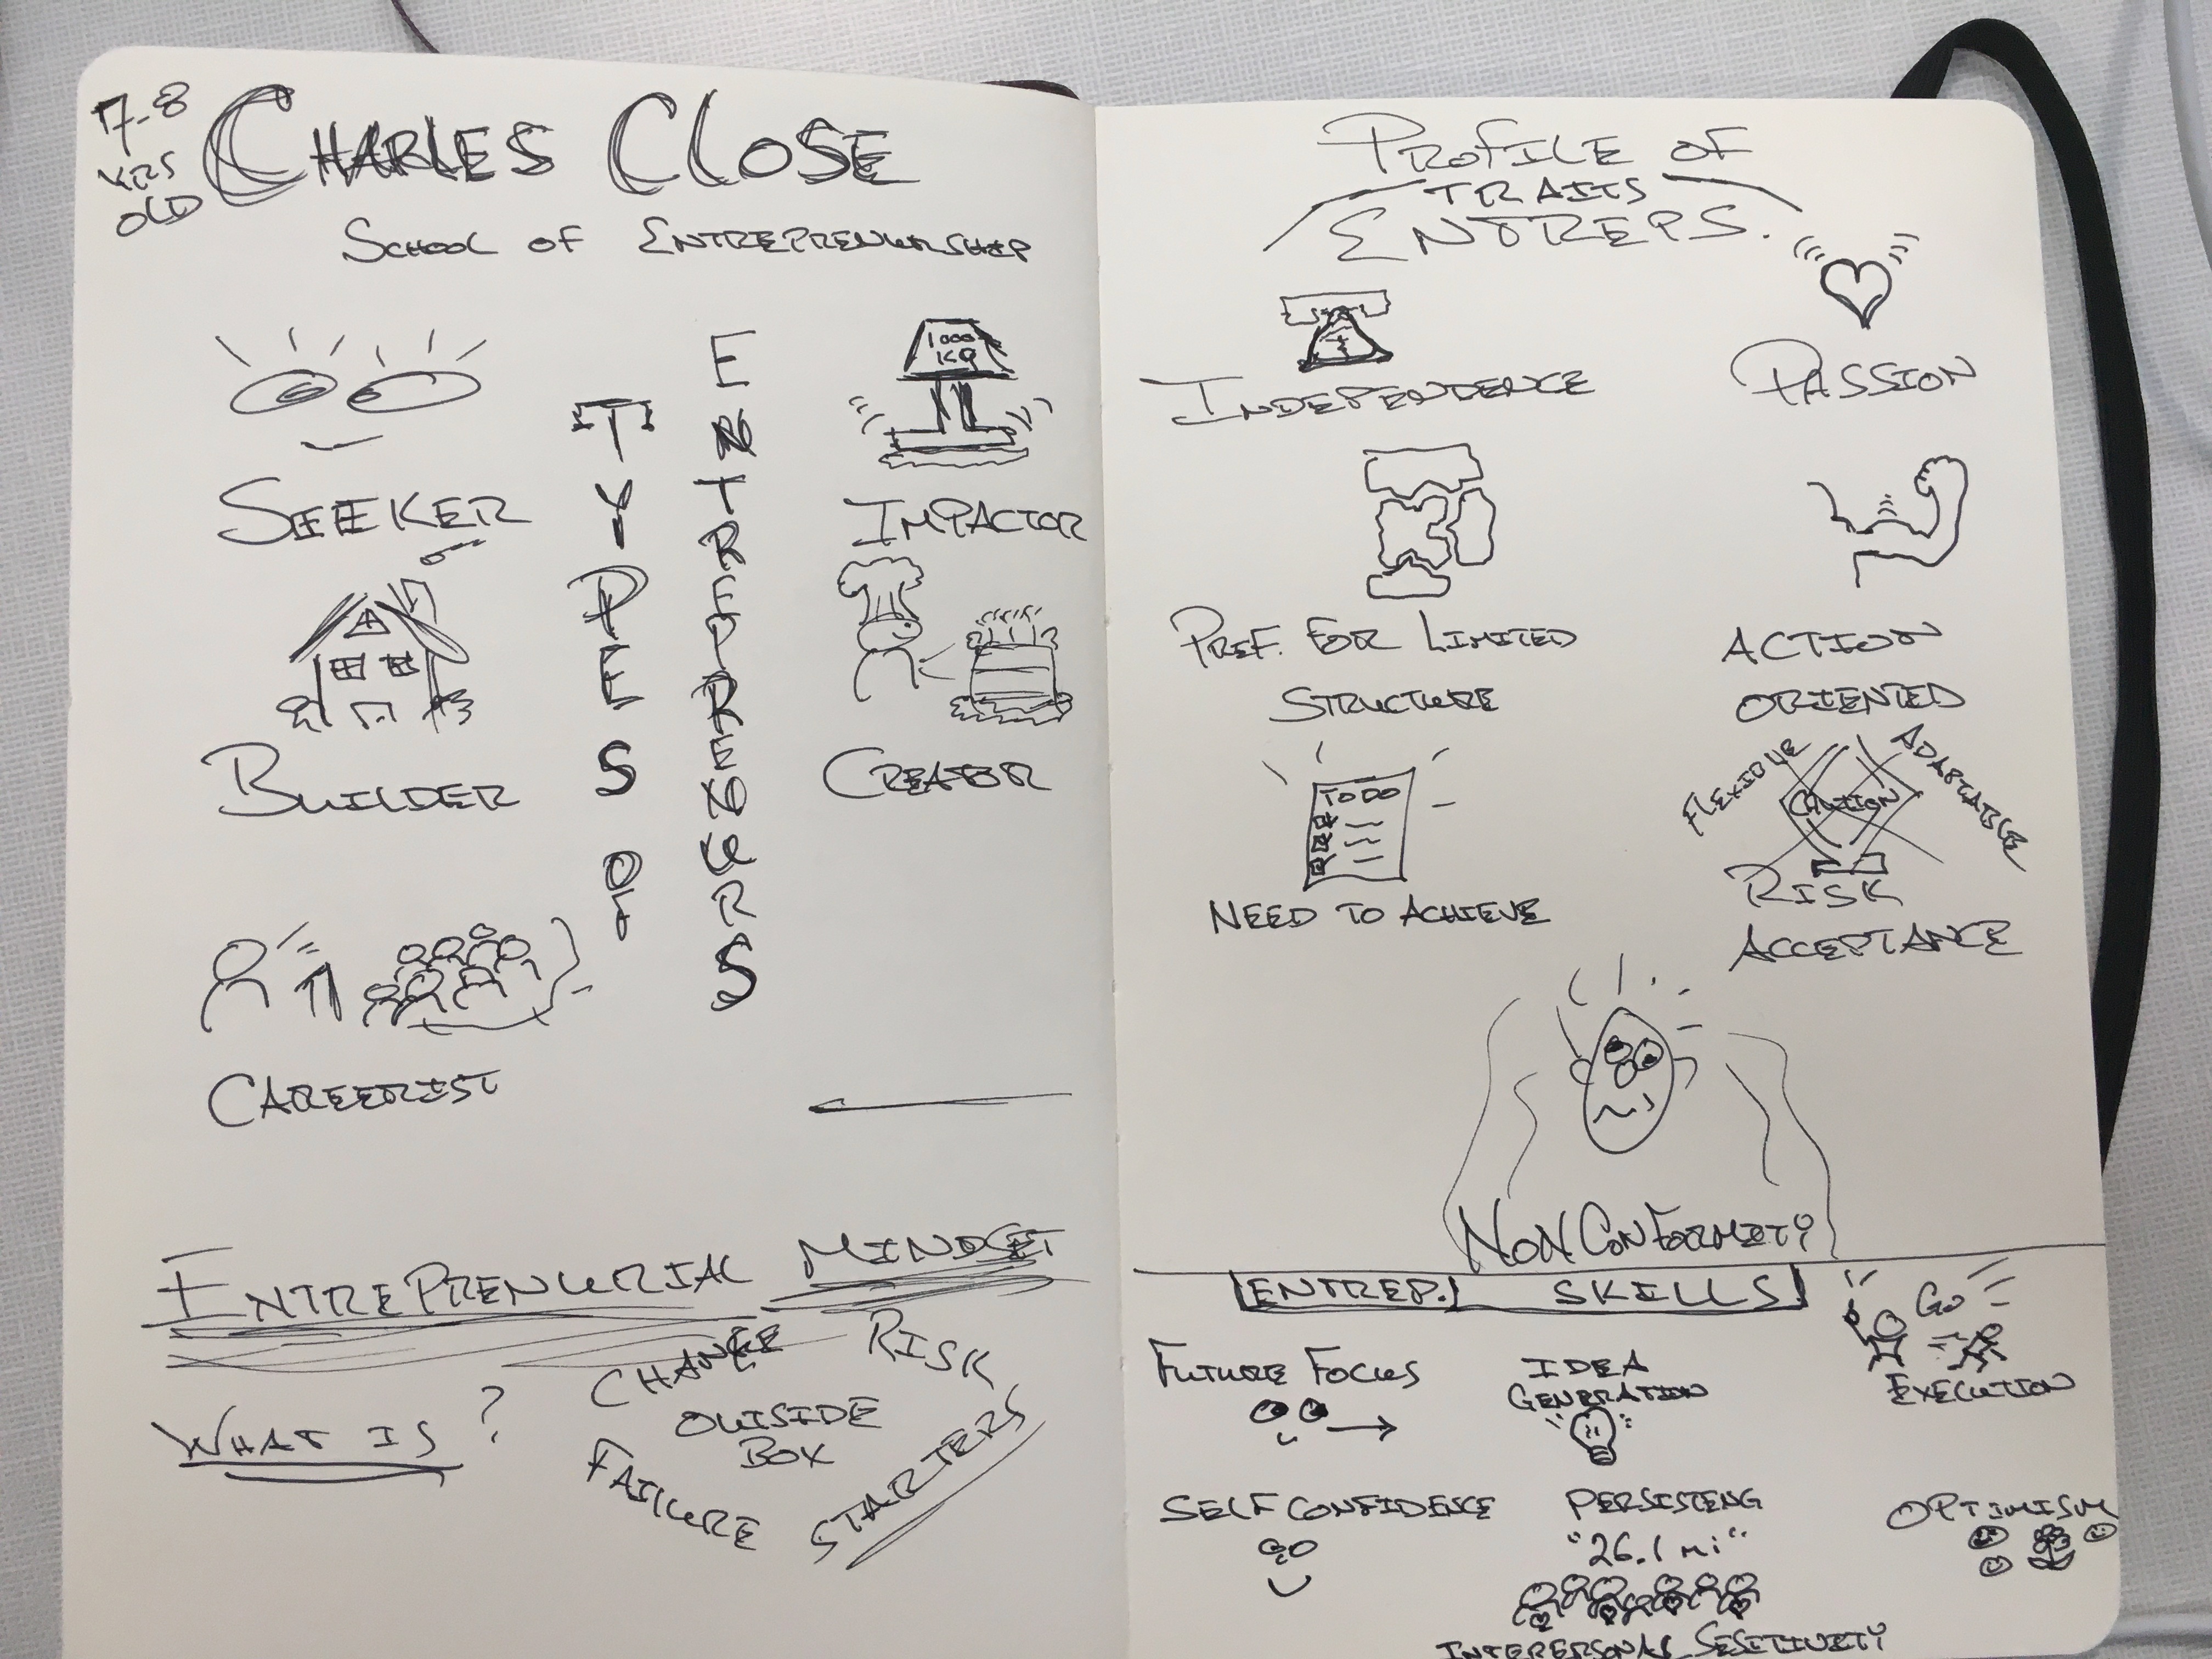 17-8
YRS
OLD
CHARLES CLOSE
SCHOOL OF ENTREPRENURSHIP
TYPES OF
ENTREPRENURS
1000
KG
SEEKER
IMPACTOR
BUILDER
CREATOR
CAREERIST
ENTREPRENURIAL MINDSET
WHAT IS?
CHANGE
RISK
OUTSIDE
BOX
FAILURE
STARTERS
PROFILE OF
TRAITS
ENTREPS.
INDEPENDENCE
PASSION
PREF. FOR LIMITED
STRUCTURE
ACTION
ORIENTED
TO DO
NEED TO ACHIEVE
FLEXIBLE
ADAPTABLE
CAUTION
RISK
ACCEPTANCE
NON CONFORMITY
ENTREP. SKILLS
FUTURE FOCUS
IDEA
GENERATION
GO
EXECUTION
SELF CONFIDENCE
PERSISTENG
"26.1 mi"
OPTIMISM
INTERPERSONAL SESITIVITY